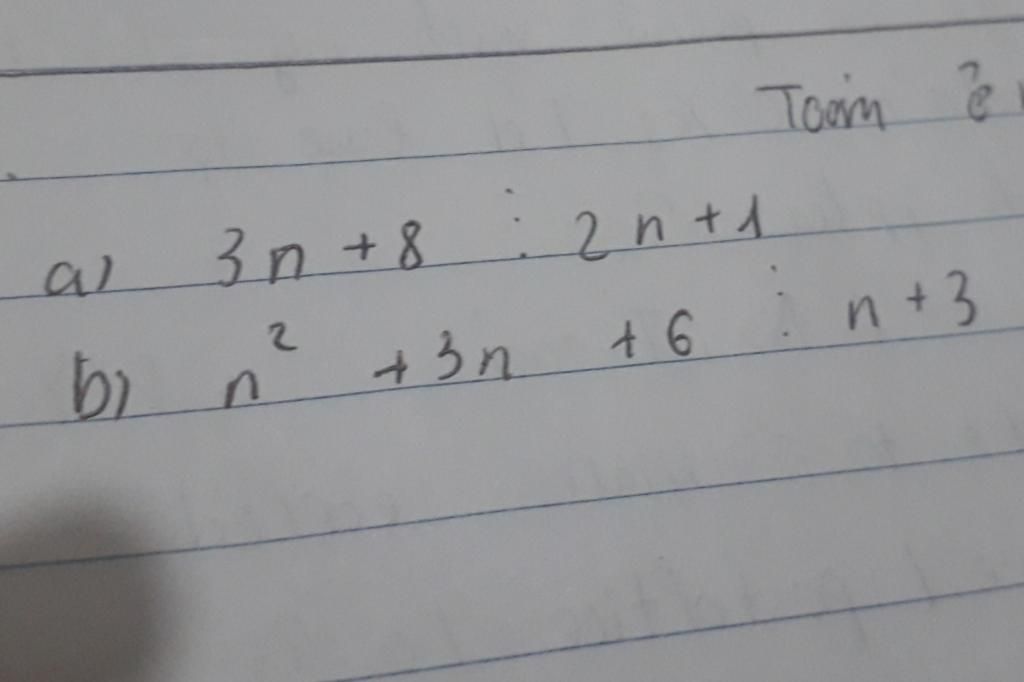 Toán
a) 3n + 8 ⋮ 2n + 1
b) n² + 3n + 6 ⋮ n + 3